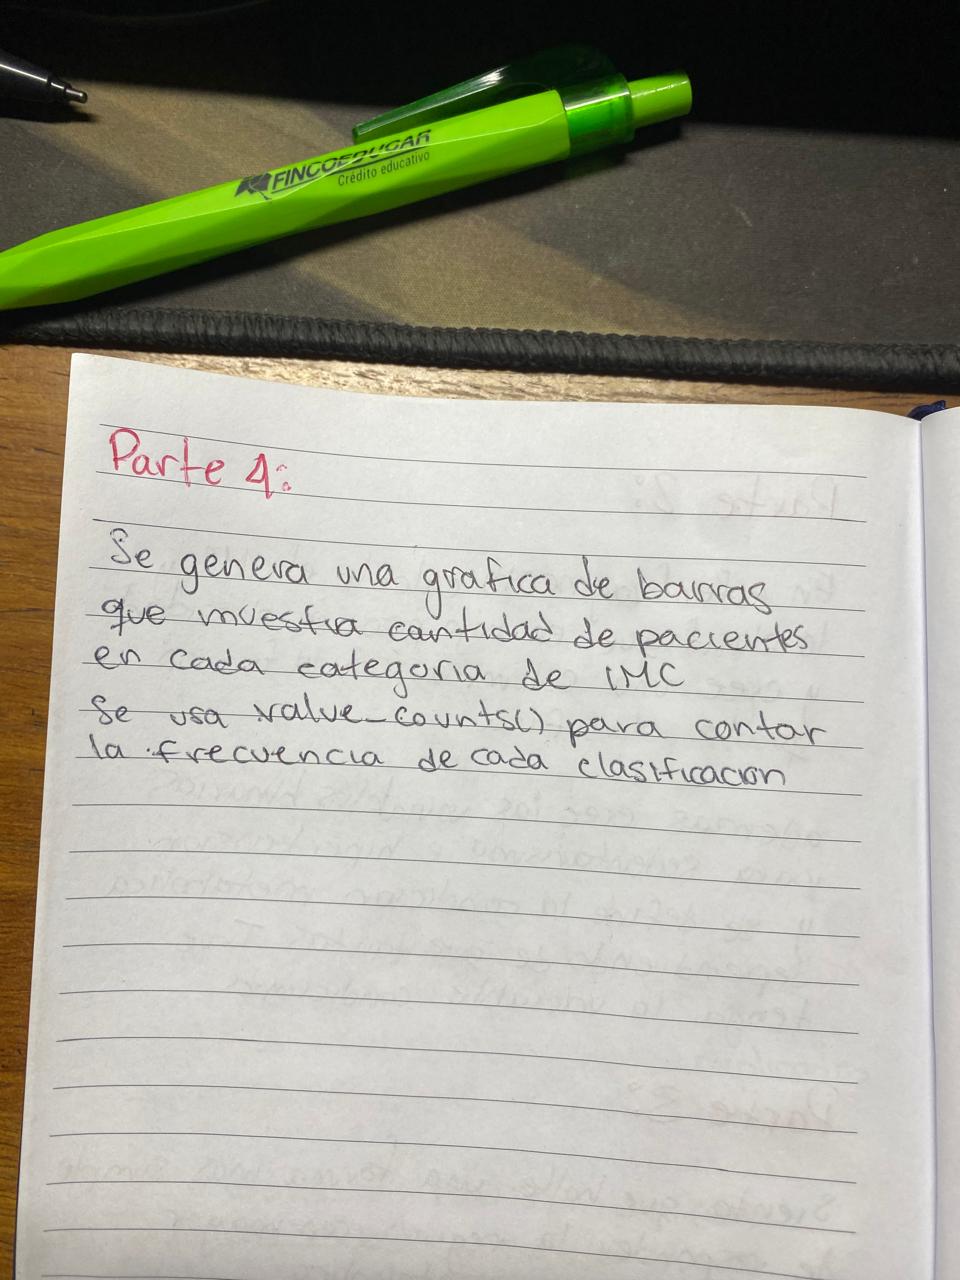 FINCOEDUCAR
Crédito educativo
Parte 4:
Se genera una grafica de barras
que muestra cantidad de pacientes
en cada categoria de IMC
Se usa value_counts() para contar
la frecuencia de cada clasificacion